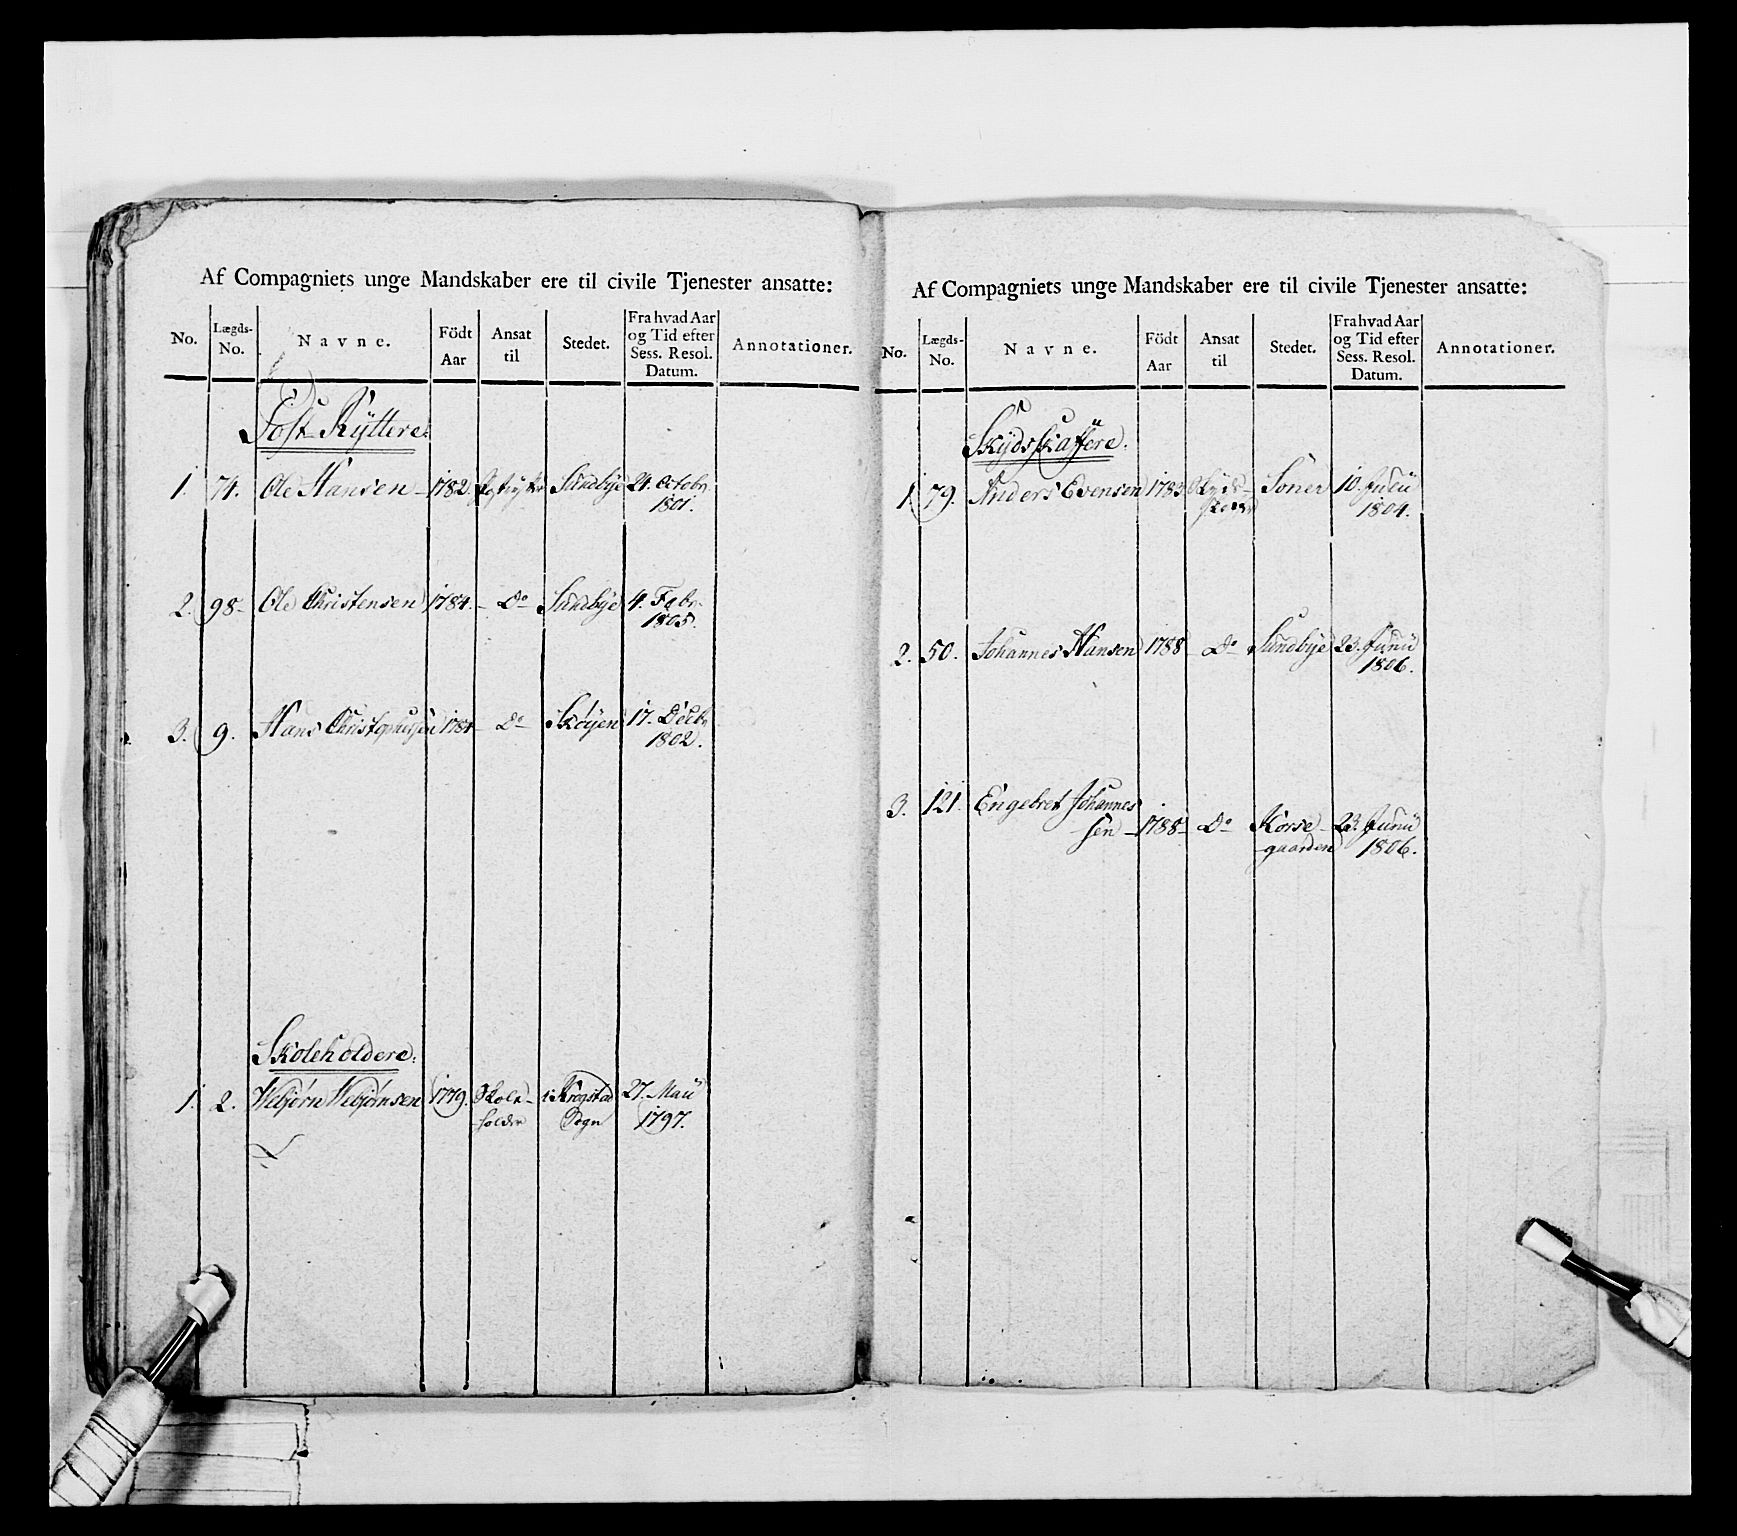 Af Compagniets unge Mandskaber ere til civile Tjenester ansatte:
No. Lægds-No. Navne. Födt Aar Ansat til Stedet. Fra hvad Aar og Tid efter Sess. Resol. Datum. Annotationer.
Post Ryttere:
1. 74. Ole Hansen 1782. Postrytter Sundbye 24. Octobr.
1801.
2. 98 Ole Christensen 1784. Do Sundbye 4. Febr.
1805.
3. 9. Hans Christophersen 1784 Do Skøyen 17. Decbr
1802.
Skoleholdere:
1. 2. Vebjørn Vebjønsen 1779. Skole- i Krogstad 27. Maii
holder Sogn 1797.
Af Compagniets unge Mandskaber ere til civile Tjenester ansatte:
No. Lægds-No. Navne. Födt Aar Ansat til Stedet. Fra hvad Aar og Tid efter Sess. Resol. Datum. Annotationer.
Skydsskaffere:
1. 79. Anders Evensen 1783 Skyds- Soner 10. Julii
1804.
2. 50. Johannes Hansen 1788 Do Sundbye 23. Junii
1806.
3. 121. Engebret Johannes
sen 1788 Do Korse 23. Junii
gaarden 1806.